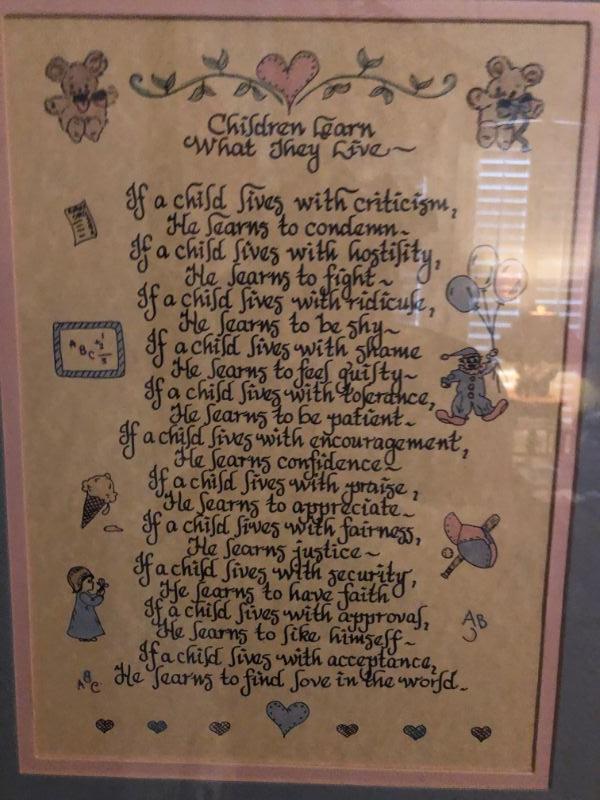 Children Learn
What They Live~
If a child lives with criticism,
He learns to condemn~
If a child lives with hostility,
He learns to fight~
If a child lives with ridicule,
He learns to be shy~
If a child lives with shame
He learns to feel guilty~
If a child lives with tolerance,
He learns to be patient~
If a child lives with encouragement,
He learns confidence~
If a child lives with praise,
He learns to appreciate~
If a child lives with fairness,
He learns justice~
If a child lives with security,
He learns to have faith
If a child lives with approval,
He learns to like himself~
If a child lives with acceptance,
He learns to find love in the world~
ABC
AB
ABC